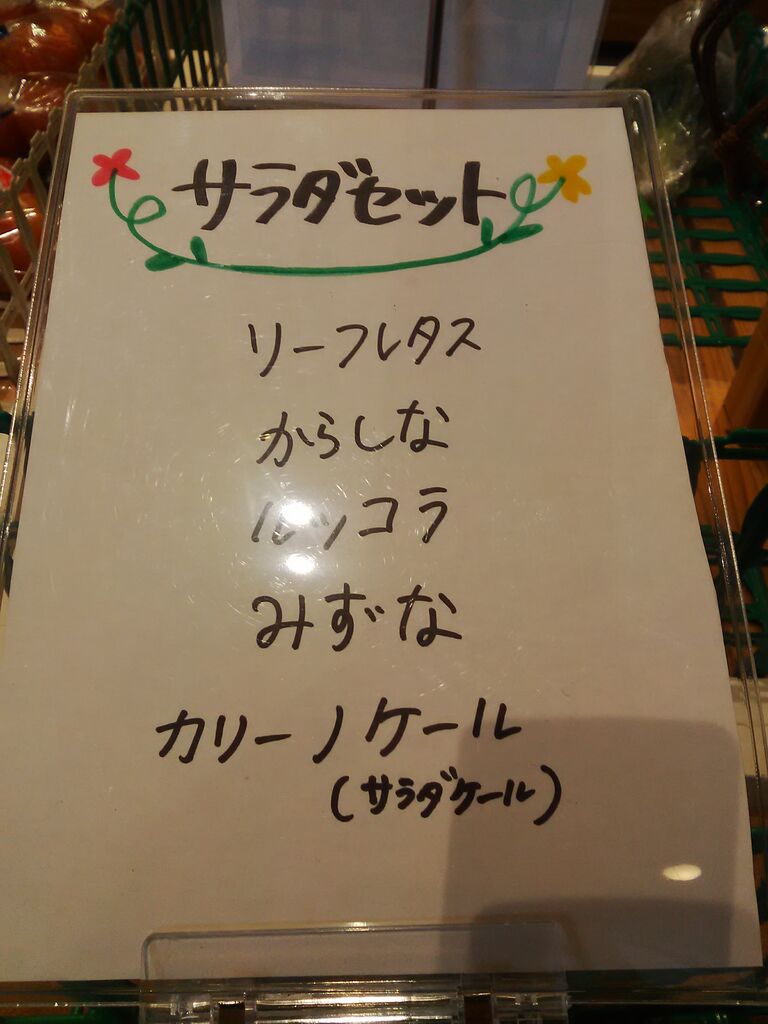 サラダセット
リーフレタス
からしな
ルッコラ
みずな
カリーノケール
(サラダケール)